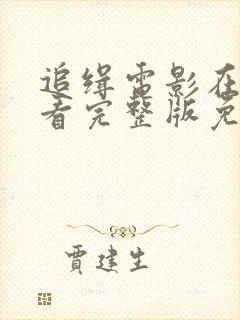 追缉雷影在
看完整版免
贾建生